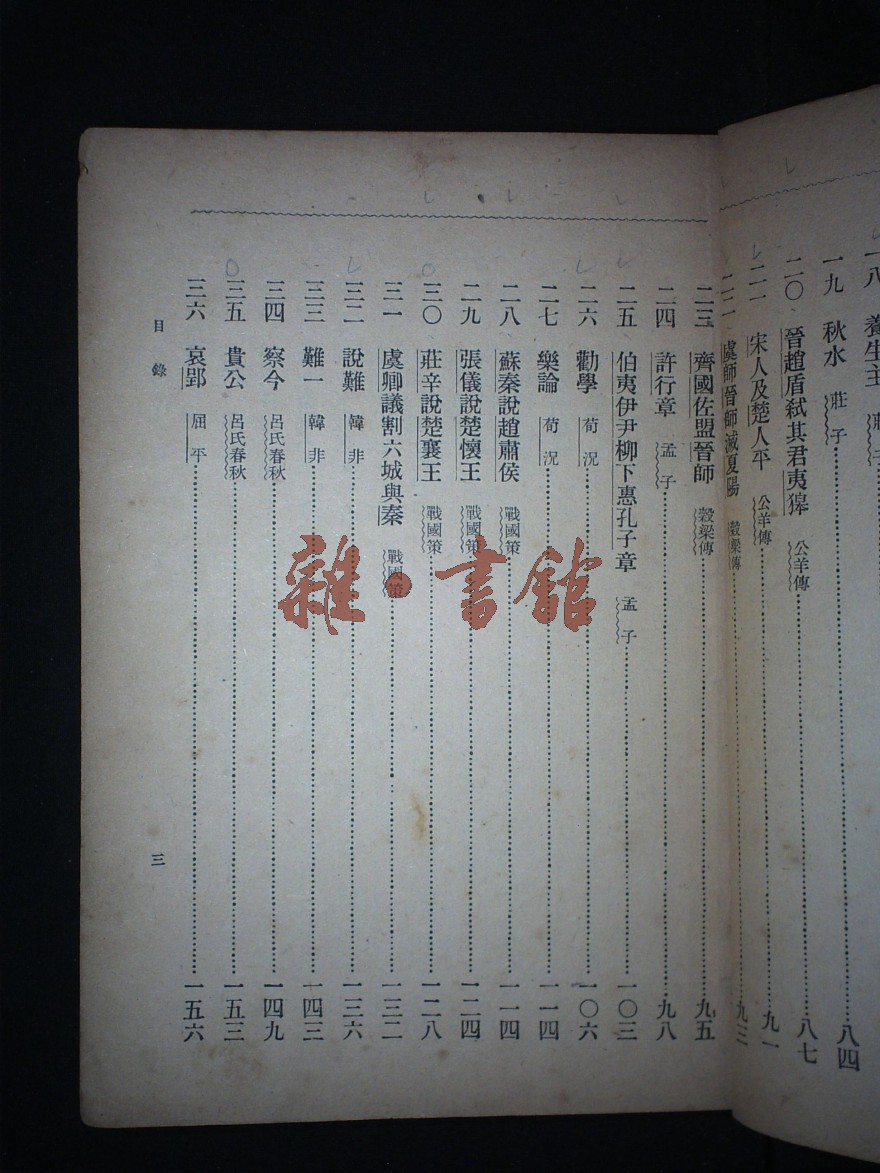 一八 養生主 莊子
一九 秋水 莊子 八四
二〇 晉趙盾弒其君夷獋 公羊傳 八七
二一 宋人及楚人平 公羊傳 九一
二二 虞師晉師滅夏陽 穀梁傳 九三
二三 齊國佐盟晉師 穀梁傳 九五
二四 許行章 孟子 九八
二五 伯夷伊尹柳下惠孔子章 孟子 一〇三
二六 勸學 荀況 一〇六
二七 樂論 荀況 一一四
二八 蘇秦說趙肅侯 戰國策 一一四
二九 張儀說楚懷王 戰國策 一二四
三〇 莊辛說楚襄王 戰國策 一二八
三一 虞卿議割六城與秦 戰國策 一三二
三二 說難 韓非 一三六
三三 難一 韓非 一四三
三四 察今 呂氏春秋 一四九
三五 貴公 呂氏春秋 一五三
三六 哀郢 屈平 一五六
目錄 三
雜·書館